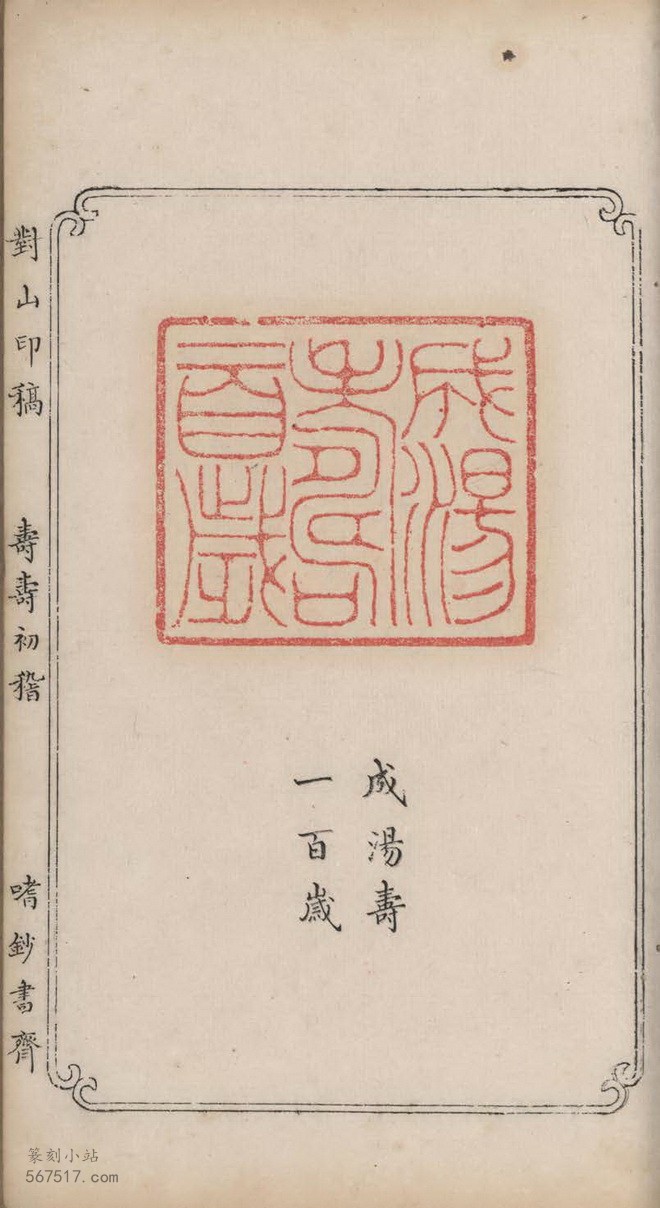 成湯壽
一百歲
成湯壽
一百歲
對山印稿 壽壽初稽 嗜鈔書齋
篆刻小站
567517.com